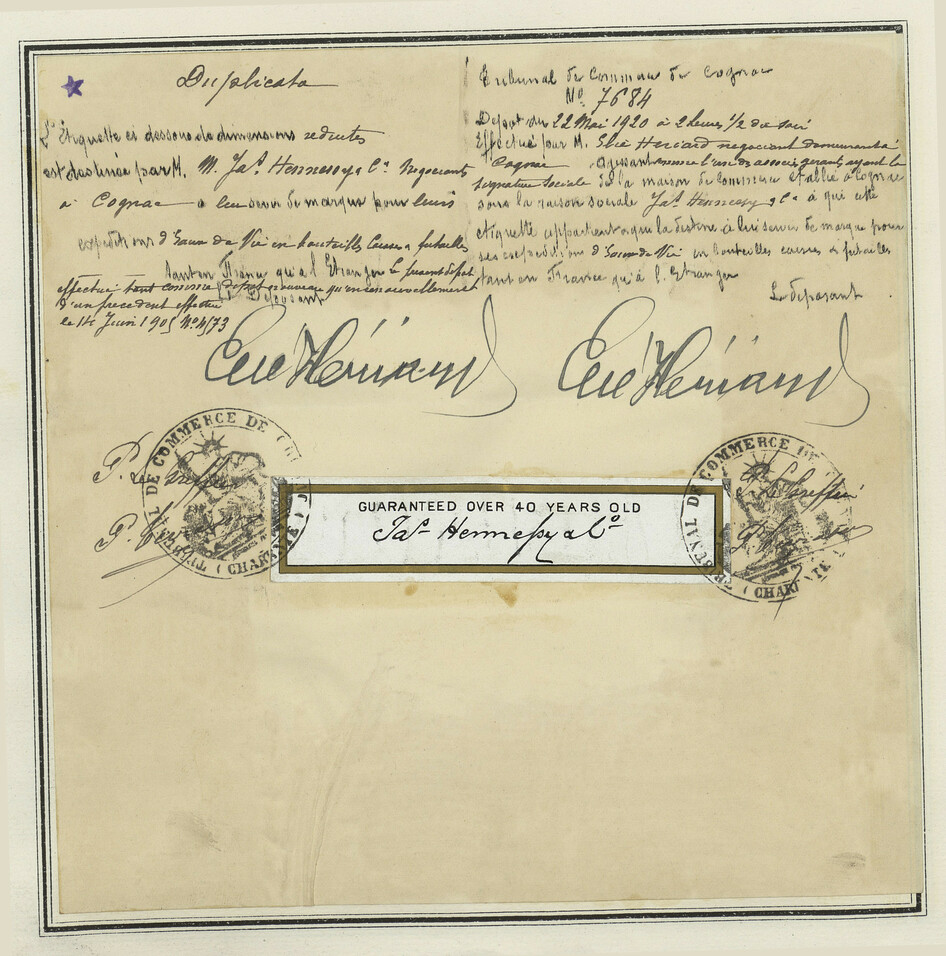 Duplicata
L'Étiquette ci dessous de dimensions reduites
est destinée par M. M. Jas Hennessy & Co Negociants
à Cognac à leur servir de marque pour leurs
expeditions d'Eaux de Vie en bouteilles caisses & futailles
tant en France qu'a l'Etranger Le present depot
effectué tant comme depot nouveau qu'en renouvellement
d'un precedent effectué
Le Deposant
le 14 Juin 1905 No 4573
Tribunal de Commerce de Cognac
No 7684
Depot du 22 Mai 1920 à 2 heures 1/2 du soir
Effectué par M. Elie Heriard negociant demeurant à
Cognac agissant comme l'un des associés gerants ayant la
signature sociale de la maison de Commerce établie à Cognac
sous la raison sociale Jas Hennessy & Co à qui cette
etiquette appartient & qui la destine à lui servir de marque pour
ses expeditions d'Eaux de Vie en bouteilles caisses & futailles
tant en France qu'à l'Etranger
Le deposant
Elie Heriard
Elie Heriard
P. Le Greffier
TRIBUNAL DE COMMERCE DE
(CHARENTE)
GUARANTEED OVER 40 YEARS OLD
Jas Hennessy & Co
P. Le Greffier
TRIBUNAL DE COMMERCE DE
(CHARENTE)